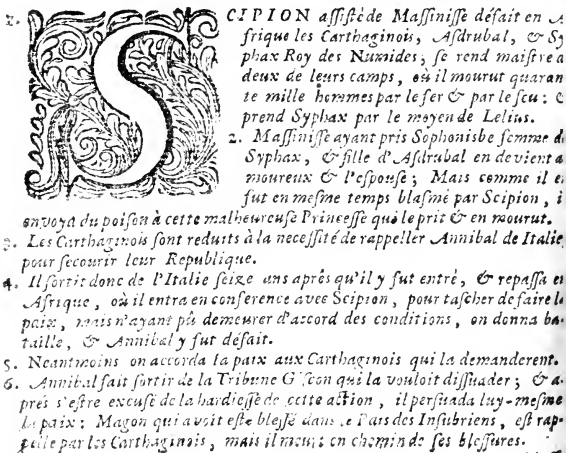 1. SCIPION assisté de Massinisse défait en A
frique les Carthaginois, Asdrubal, & Sy
phax Roy des Numides; se rend maistre a
deux de leurs camps, où il mourut quaran
te mille hommes par le fer & par le feu: &
prend Syphax par le moyen de Lelius.
2. Massinisse ayant pris Sophonisbe femme d
Syphax, & fille d'Asdrubal en devient a
moureux & l'espouse; Mais comme il e
fut en mesme temps blasmé par Scipion, i
envoya du poison à cette malheureuse Princesse qui le prit & en mourut.
3. Les Carthaginois sont reduits à la necessité de rappeller Annibal de Italie
pour secourir leur Republique.
4. Il sortit donc de l'Italie seize ans aprés qu'il y fut entré, & repassa en
Afrique, où il entra en conference avec Scipion, pour tascher de faire la
paix, mais n'ayant pû demeurer d'accord des conditions, on donna ba-
taille, & Annibal y fut défait.
5. Neantmoins on accorda la paix aux Carthaginois qui la demanderent.
6. Annibal fait sortir de la Tribune Giscon qui la vouloit dissuader; & a-
prés s'estre excusé de la hardiesse de cette action, il persuada luy-mesme
la paix: Magon qui avoit esté blessé dans le Païs des Insubriens, est rap-
pellé par les Carthaginois, mais il meurt en chemin de ses blessures.